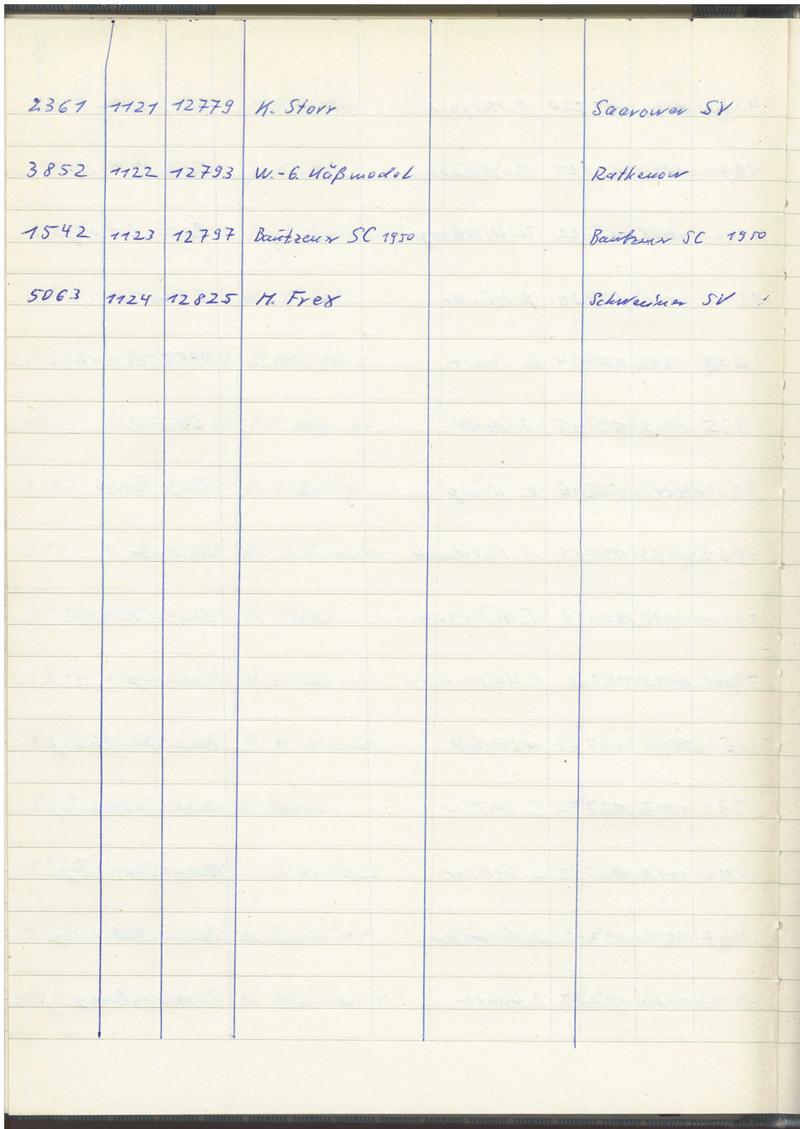 2361 1121 12779 K. Storr Saarower SV
3852 1122 12793 W.-G. Käßmodel Rathenow
1542 1123 12797 Bautzener SC 1950 Bautzener SC 1950
5063 1124 12825 M. Frey Schweriner SV